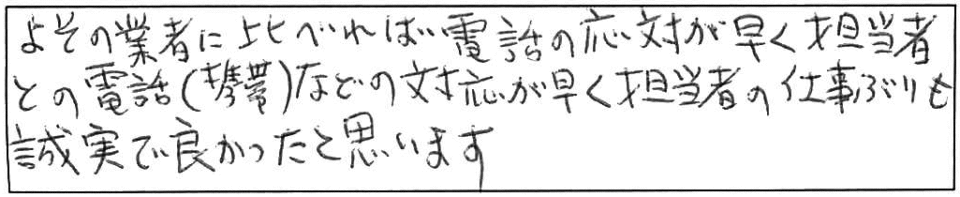 よその業者に比べれば電話の応対が早く担当者
との電話(携帯)などの対応が早く担当者の仕事ぶりも
誠実で良かったと思います